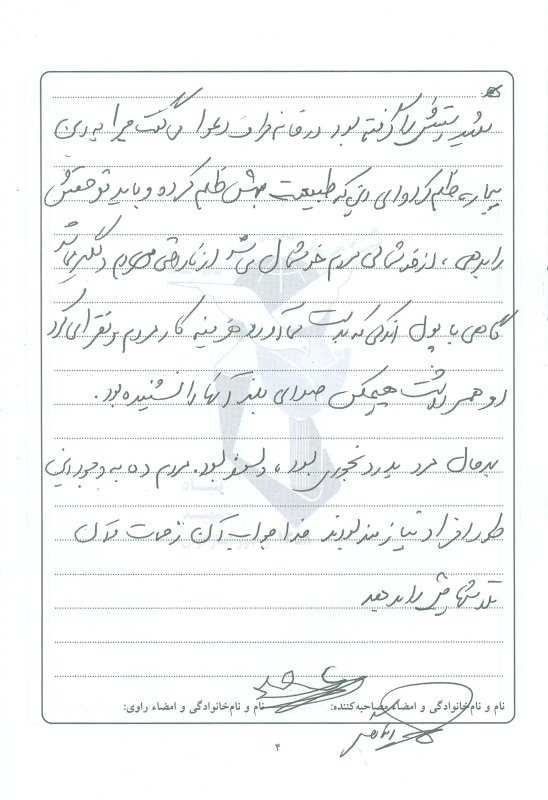 گفته بود در خانه طرف دعوا می گفت چرا به این
بیچاره ظلم کرده ای این که طبیعت بهش ظلم کرده و باید تو حقش
را بدهی، از خوشحالی مردم خوشحال می شد از ناراحتی مردم دلگیر می شد
گاهی با پول اندکی که بدست می آورد هزینه کار مردم و فقرا می کرد
دو همسر داشت هیچکس صدای بلند آنها را نشنیده بود.
بهرحال مرد بدرد بخوری بود، دلسوز بود. مردم ده به وجود این
طور افراد نیازمند بودند خدا جواب آن زحمات و آن
تلاشهایش را بدهد
نام و نام‌خانوادگی و امضاء مصاحبه‌کننده: نام و نام‌خانوادگی و امضاء راوی:
۴